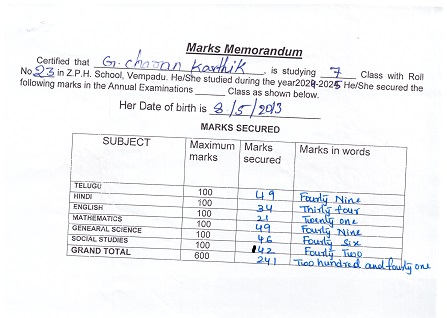 Marks Memorandum
Certified that G. charan Karthik, is studying 7 Class with Roll
No 23 in Z.P.H. School, Vempadu. He/She studied during the year2024-2025 He/She secured the
following marks in the Annual Examinations ______ Class as shown below.
Her Date of birth is 8/5/2013
MARKS SECURED
SUBJECT Maximum marks Marks secured Marks in words
TELUGU 100 49 Fourty Nine
HINDI 100 34 Thirty four
ENGLISH 100 21 Twenty one
MATHEMATICS 100 49 Fourty Nine
GENEARAL SCIENCE 100 46 Fourty Six
SOCIAL STUDIES 100 42 Fourty Two
GRAND TOTAL 600 241 Two hundred and fourty one